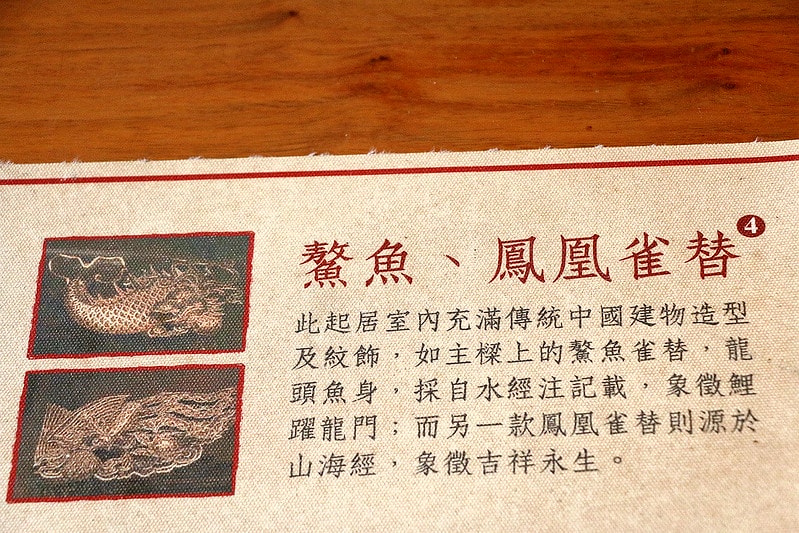 鰲魚、鳳凰雀替 4
此起居室內充滿傳統中國建物造型
及紋飾，如主樑上的鰲魚雀替，龍
頭魚身，採自水經注記載，象徵鯉
躍龍門；而另一款鳳凰雀替則源於
山海經，象徵吉祥永生。